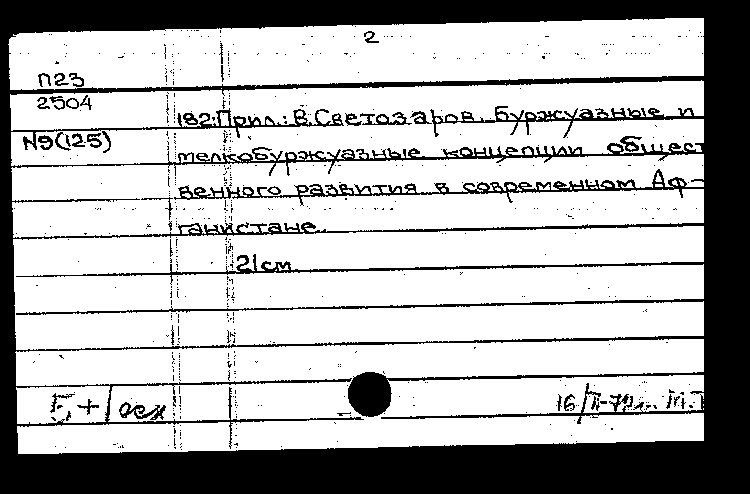 2
П23
2504
№9(125)
182:Прил.: В.Светозаров. Буржуазные и
мелкобуржуазные концепции общест
венного развития в современном Аф-
ганистане.
21см.
Б,+1 осн
16/II-79г. М.